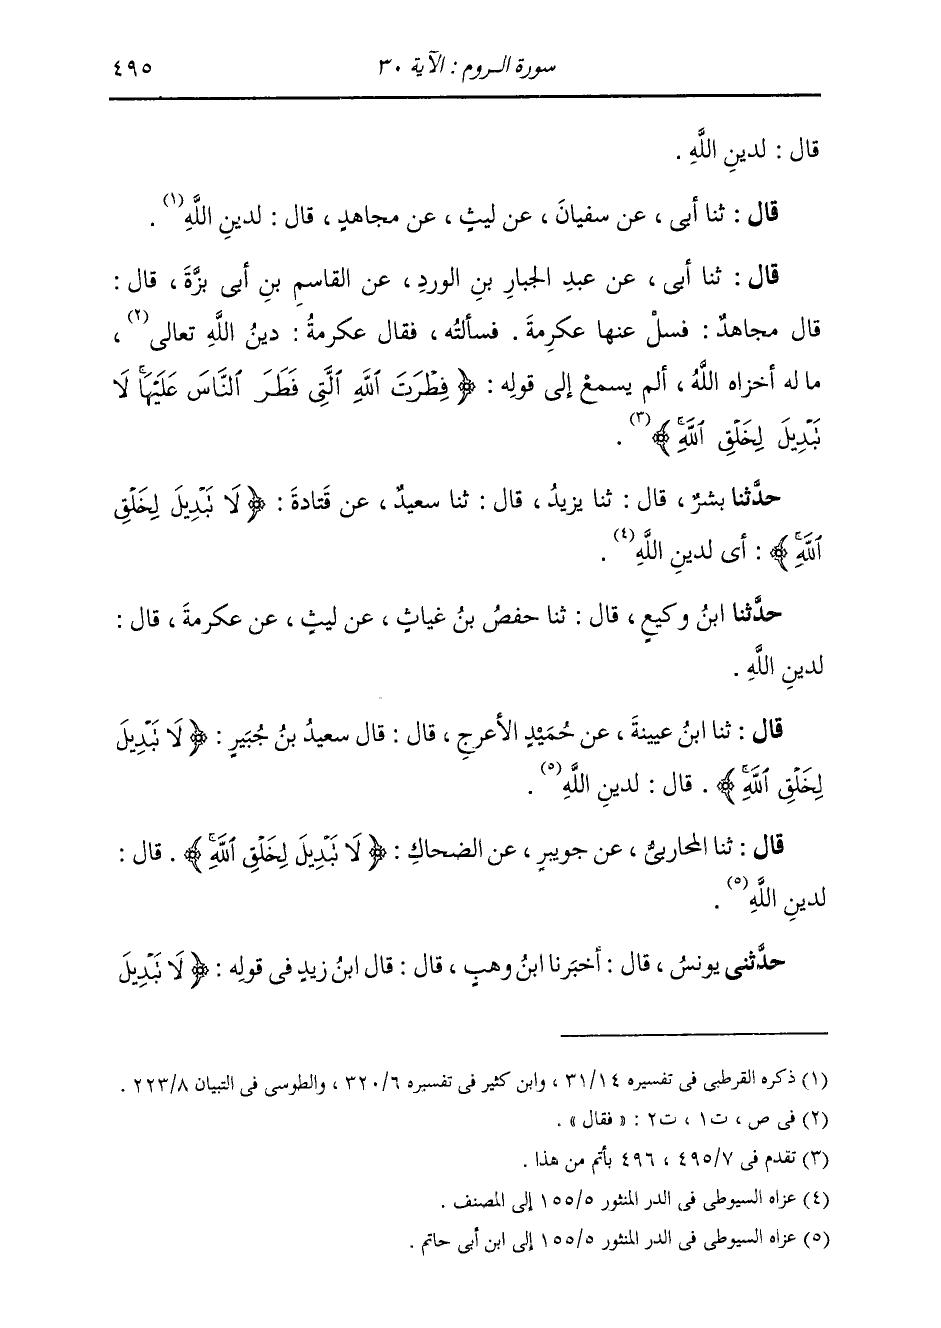 سورة الروم : الآية ٣٠ ٤٩٥
قال : لدينِ اللَّهِ .
قال : ثنا أبى ، عن سفيانَ ، عن ليثٍ ، عن مجاهدٍ ، قال : لدينِ اللَّهِ(١) .
قال : ثنا أبى ، عن عبدِ الجبارِ بنِ الوردِ ، عن القاسمِ بنِ أبى بزَّةَ ، قال :
قال مجاهدٌ : فسلْ عنها عكرمةَ . فسألتُه ، فقال عكرمةُ : دينُ اللَّهِ تعالى(٢) ،
ما له أخزاه اللَّهُ ، ألم يسمعْ إلى قولِه : ﴿ فِطْرَتَ ٱللَّهِ ٱلَّتِى فَطَرَ ٱلنَّاسَ عَلَيْهَاۚ لَا
تَبْدِيلَ لِخَلْقِ ٱللَّهِۚ ﴾(٣) .
حدَّثنا بشرٌ ، قال : ثنا يزيدُ ، قال : ثنا سعيدٌ ، عن قَتادةَ : ﴿ لَا تَبْدِيلَ لِخَلْقِ
ٱللَّهِۚ ﴾ : أى لدينِ اللَّهِ(٤) .
حدَّثنا ابنُ وكيعٍ ، قال : ثنا حفصُ بنُ غياثٍ ، عن ليثٍ ، عن عكرمةَ ، قال :
لدينِ اللَّهِ .
قال : ثنا ابنُ عيينةَ ، عن حُمَيْدٍ الأعرجِ ، قال : قال سعيدُ بنُ جُبَيرٍ : ﴿ لَا تَبْدِيلَ
لِخَلْقِ ٱللَّهِۚ ﴾ . قال : لدينِ اللَّهِ(٥) .
قال : ثنا المحاربىُّ ، عن جويبرٍ ، عن الضحاكِ : ﴿ لَا تَبْدِيلَ لِخَلْقِ ٱللَّهِۚ ﴾ . قال :
لدينِ اللَّهِ(٥) .
حدَّثنى يونسُ ، قال : أخبَرنا ابنُ وهبٍ ، قال : قال ابنُ زيدٍ فى قولِه : ﴿ لَا تَبْدِيلَ
(١) ذكره القرطبى فى تفسيره ٣١/١٤ ، وابن كثير فى تفسيره ٣٢٠/٦ ، والطوسى فى التبيان ٢٢٣/٨ .
(٢) فى ص ، ت١ ، ت٢ : « فقال » .
(٣) تقدم فى ٤٩٥/٧ ، ٤٩٦ بأتم من هذا .
(٤) عزاه السيوطى فى الدر المنثور ١٥٥/٥ إلى المصنف .
(٥) عزاه السيوطى فى الدر المنثور ١٥٥/٥ إلى ابن أبى حاتم .